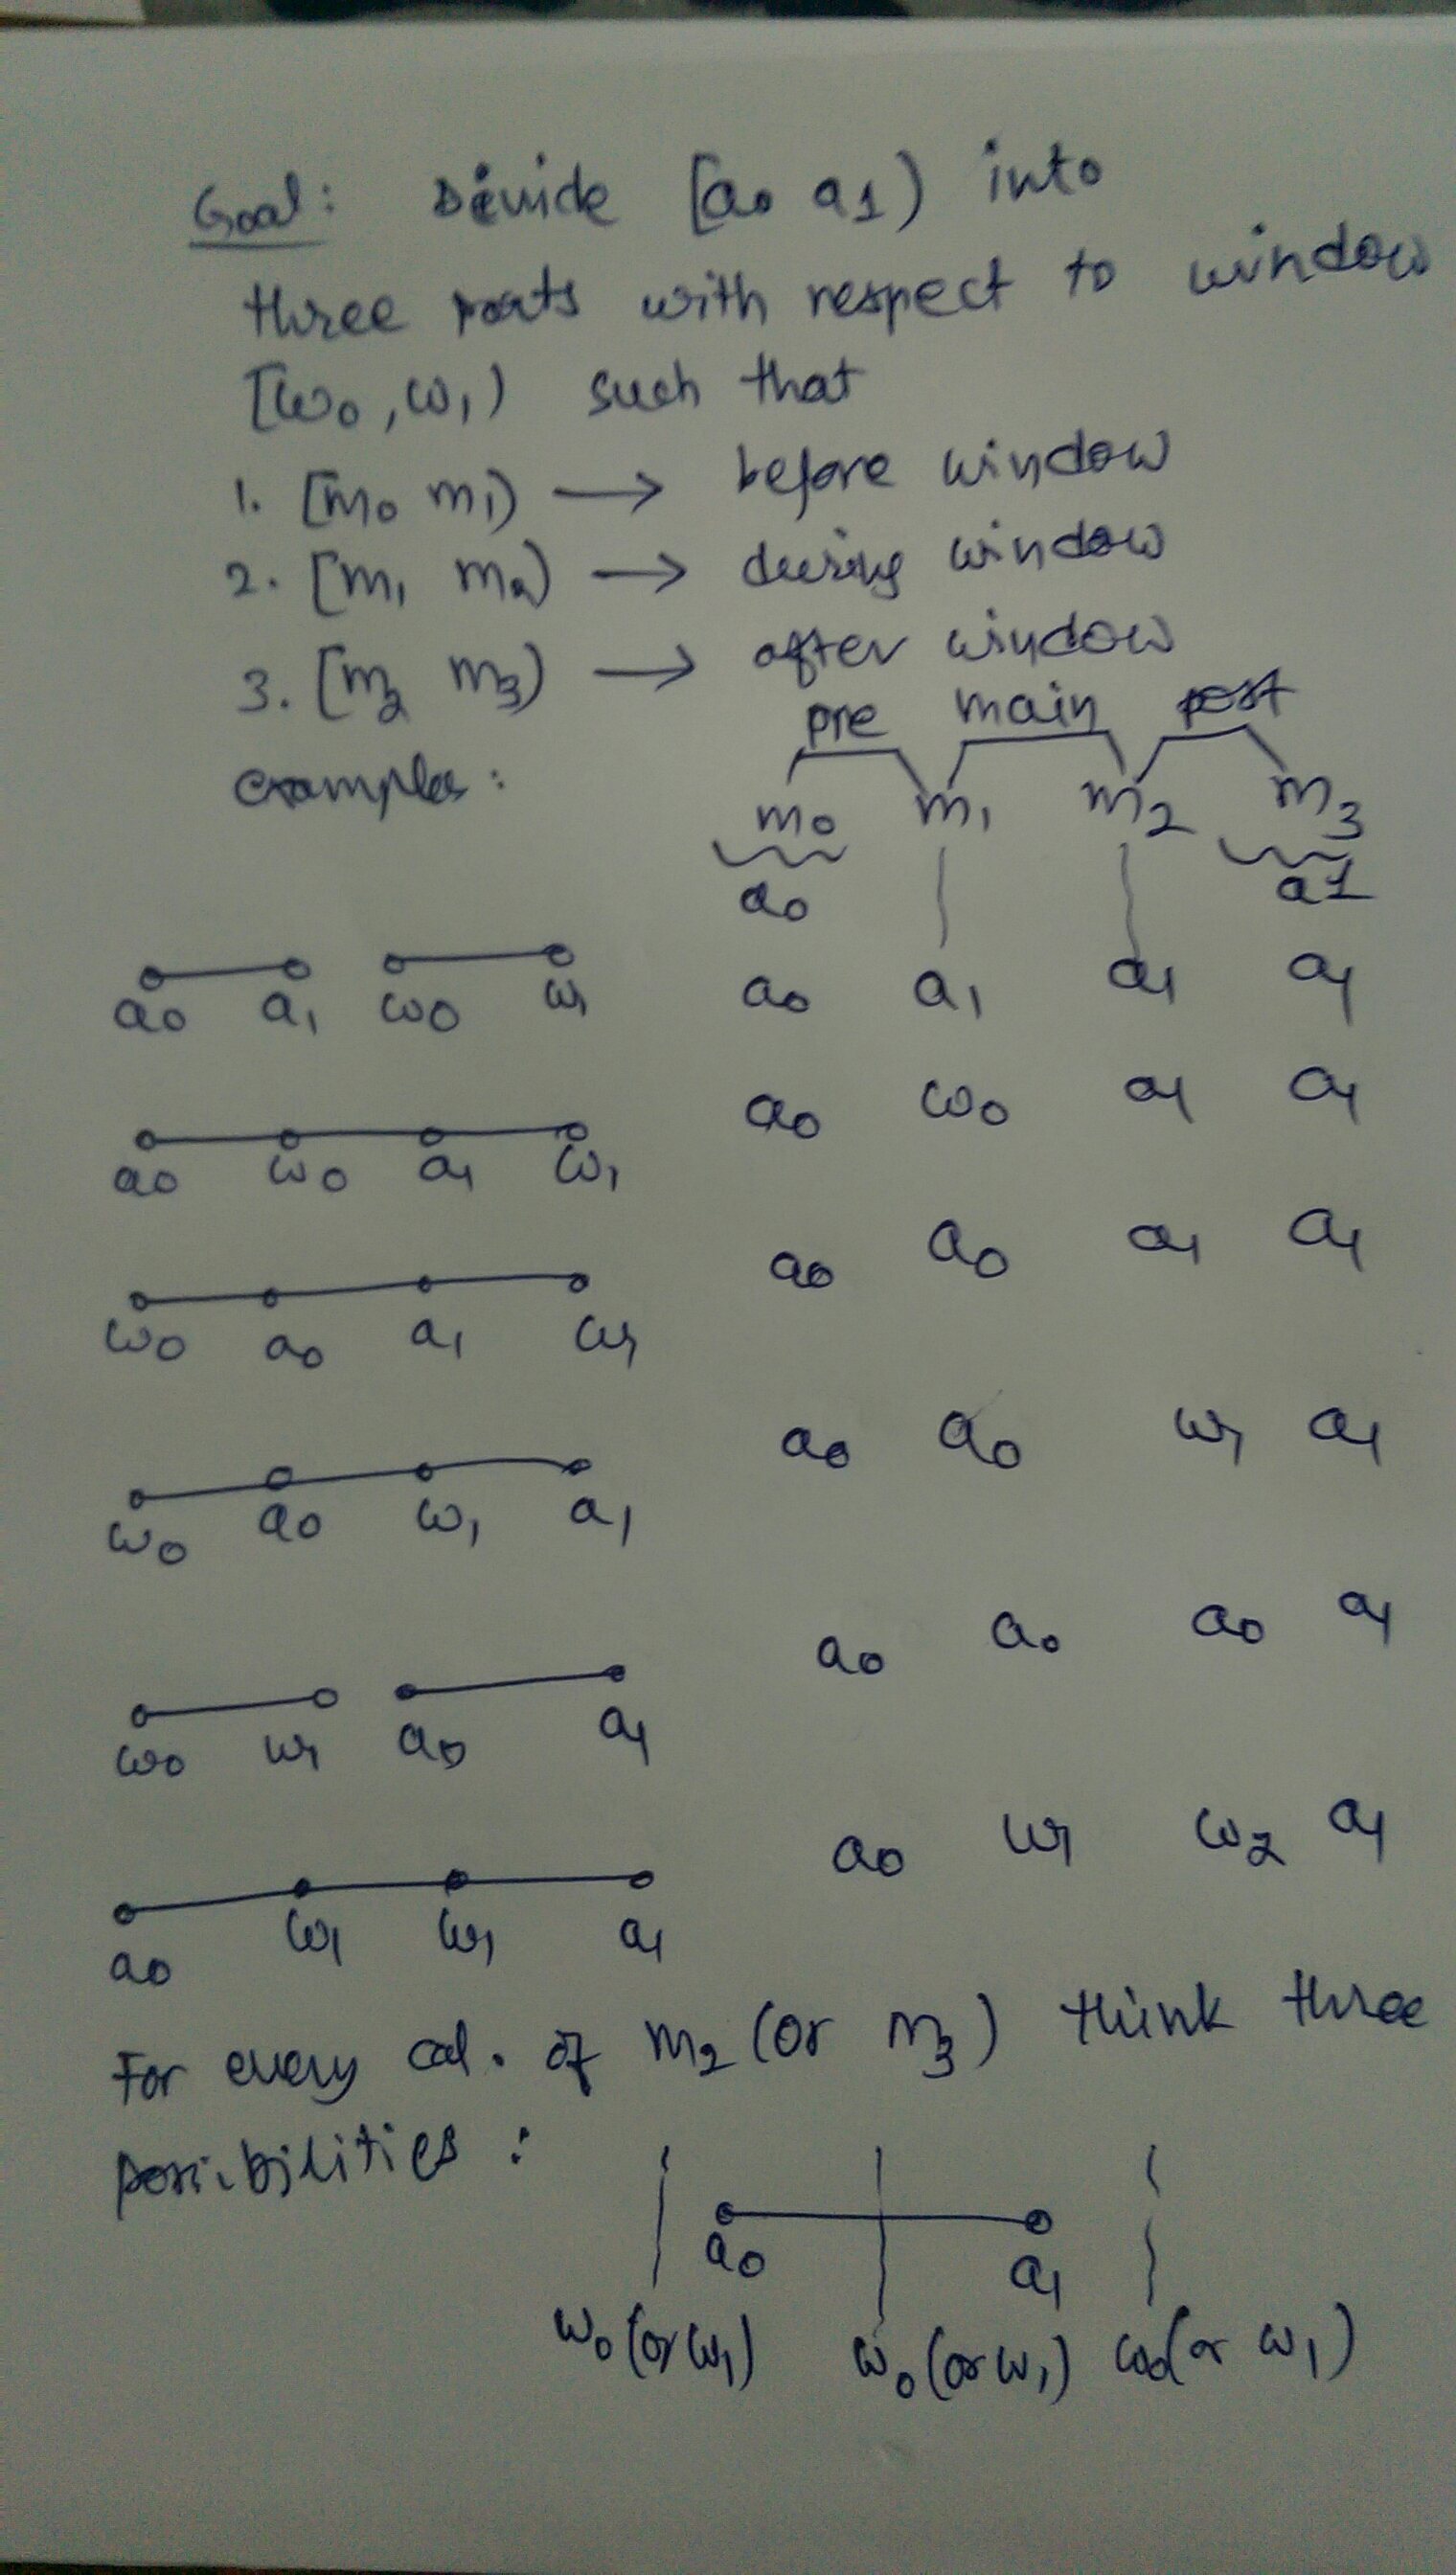 Goal: Divide [a0 a1) into
three parts with respect to window
[ω0, ω1) such that
1. [m0 m1) → before window
2. [m1 m2) → during window
3. [m2 m3) → after window
pre main post
examples:
m0 m1 m2 m3
a0 a1
a0 a1 ω0 ω1 a0 a1 a1 a1
a0 ω0 a1 ω1 a0 ω0 a1 a1
ω0 a0 a1 ω1 a0 a0 a1 a1
ω0 a0 ω1 a1 a0 a0 ω1 a1
ω0 ω1 a0 a1 a0 a0 a0 a1
a0 ω1 ω1 a1 a0 ω1 ω2 a1
For every cal. of m2 (or m3) think three
possibilities:
a0 a1
ω0 (or ω1) ω0 (or ω1) ω0 (or ω1)